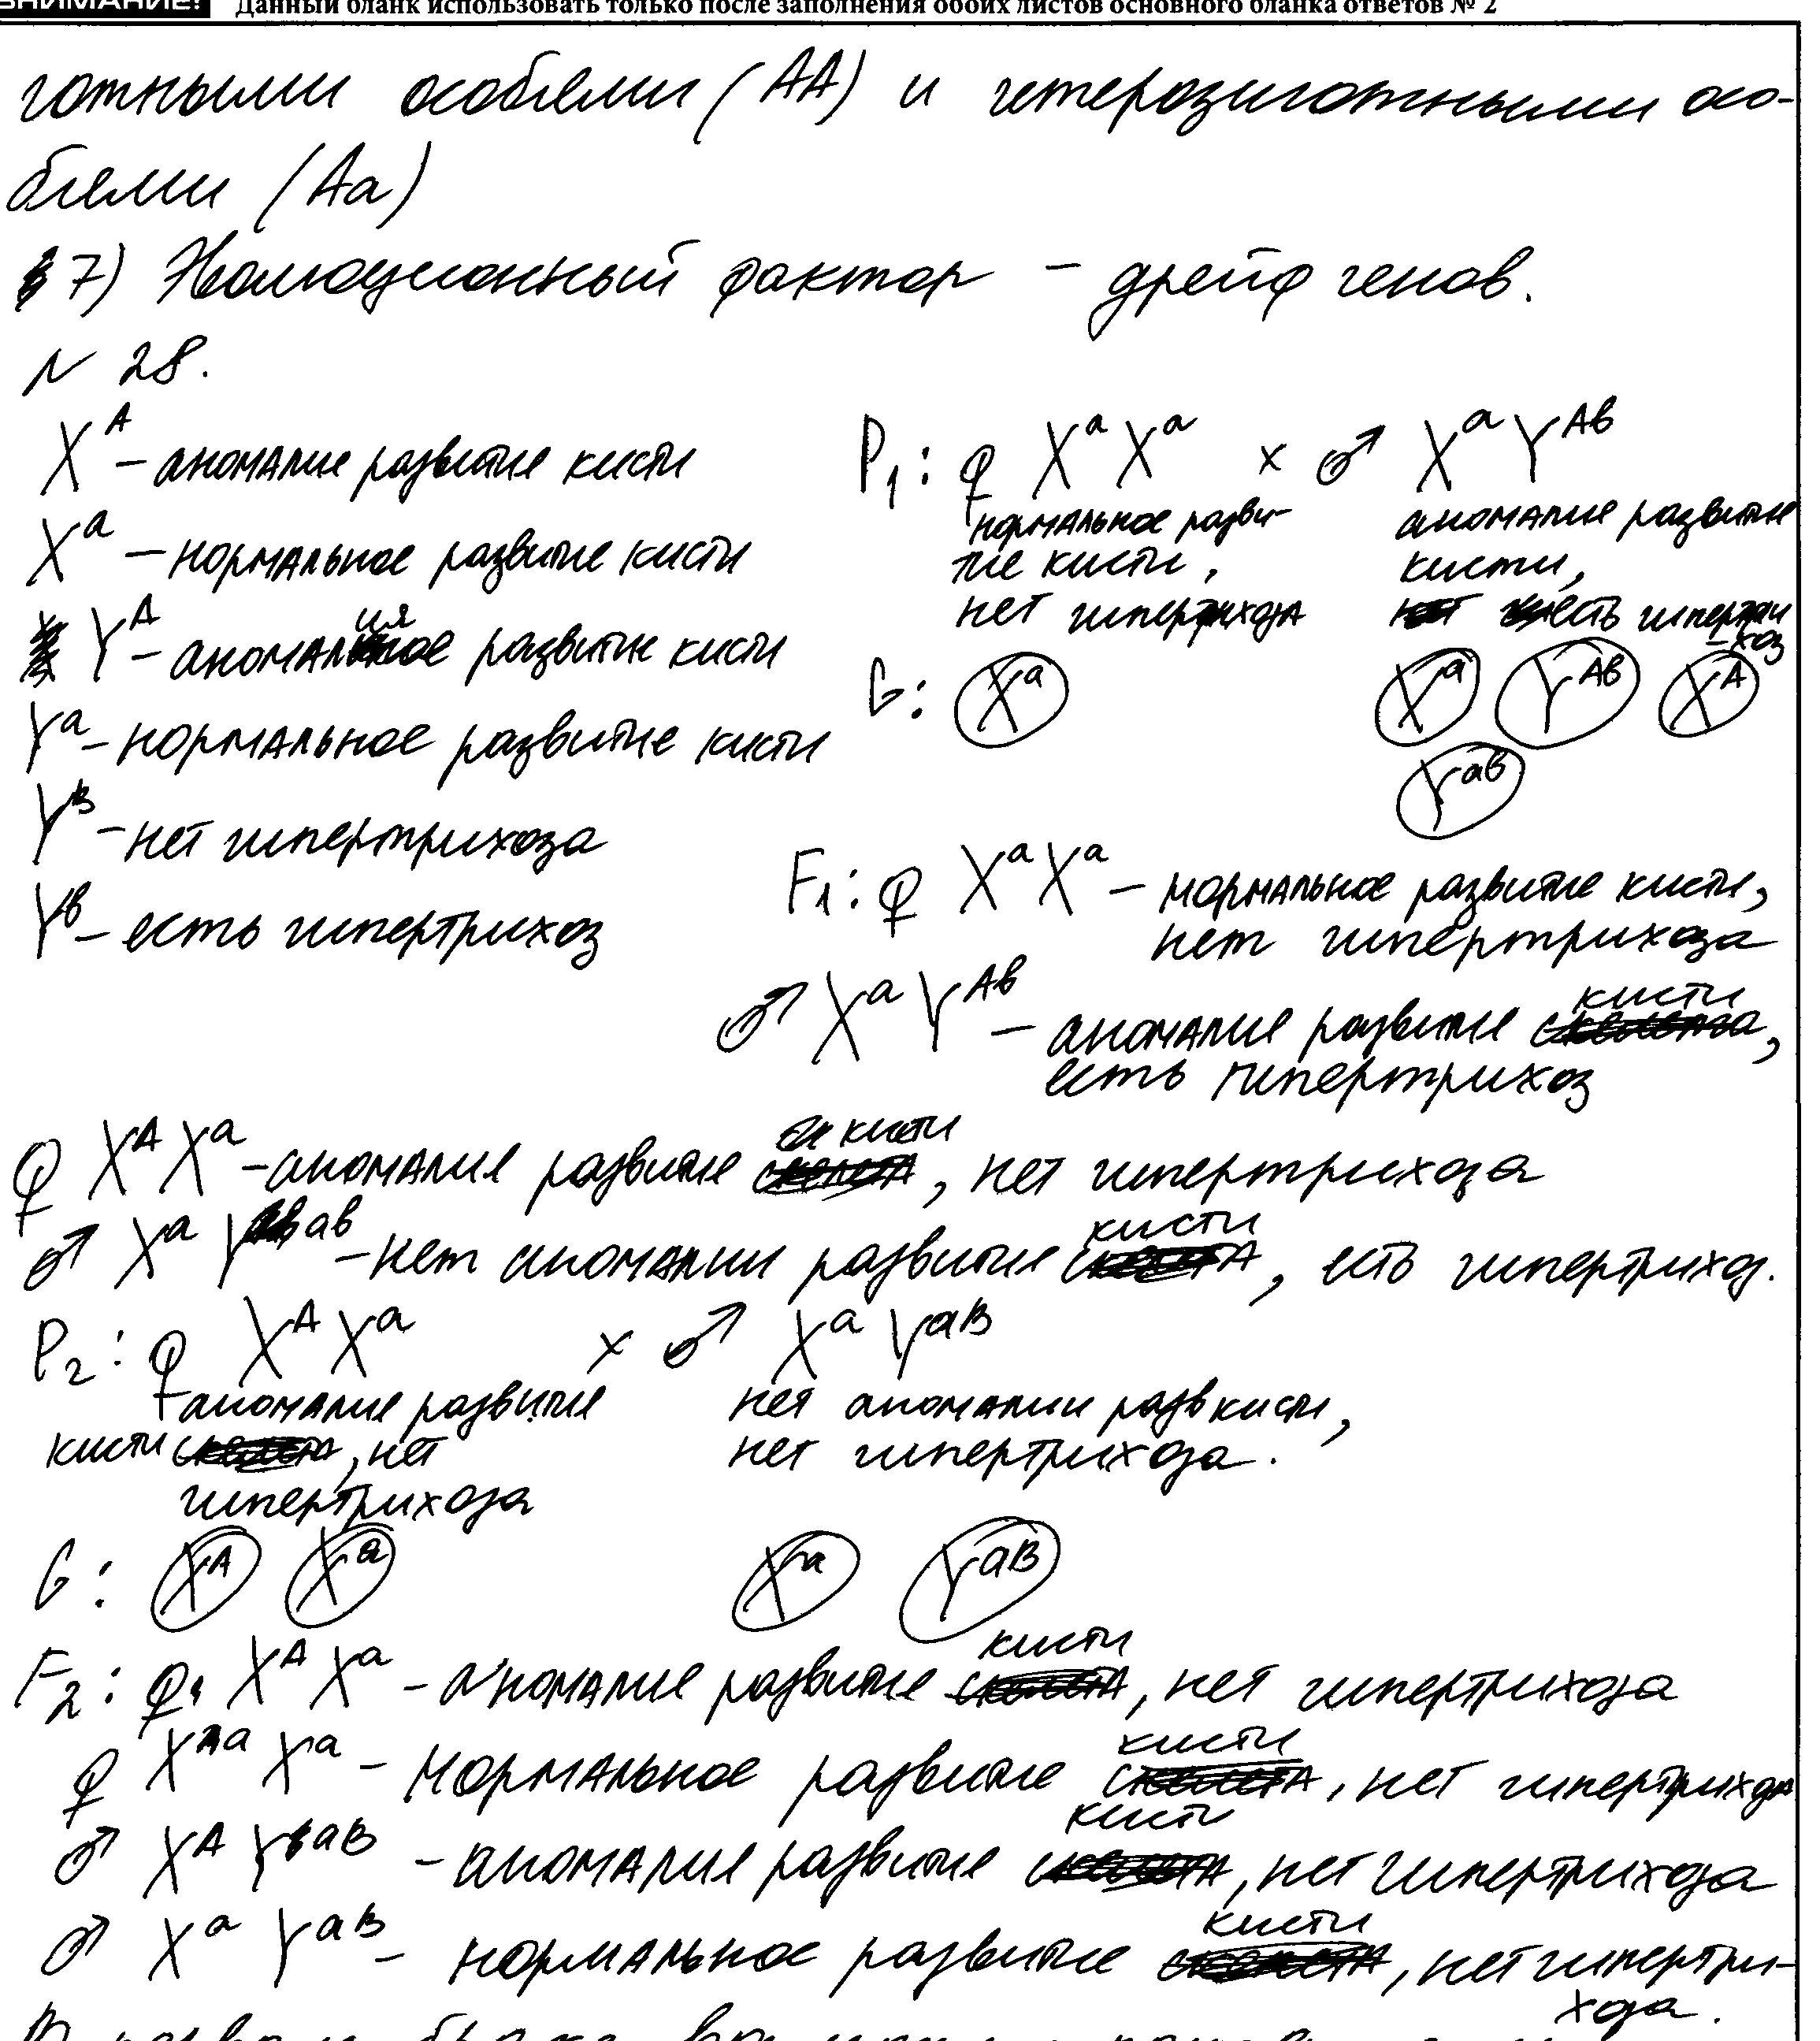 ВНИМАНИЕ! Данный бланк использовать только после заполнения обоих листов основного бланка ответов № 2
готными особями (АА) и гетерозиготными осо-
бями (Аа)
7) Эволюционный фактор – дрейф генов.
N 28.
X^A – аномалие развитие кисти
X^a – нормальное развитие кисти
Y^A – аномалия развитие кисти
Y^a – нормальное развитие кисти
Y^B – нет гипертрихоза
Y^b – есть гипертрихоз
P₁: ♀ X^a X^a × ♂ X^a Y^Ab
нормальное разви- аномалие развитие
тие кисти, кисти,
нет гипертрихоза есть гипертри
-хоз
G: X^a X^a Y^Ab X^A
Y^ab
F₁: ♀ X^a X^a – нормальное развитие кисти,
нет гипертрихоза
♂ X^a Y^Ab – аномалие развитие кисти,
есть гипертрихоз
♀ X^A X^a – аномалие развитие кисти, нет гипертрихоза
♂ X^a Y^ab – нет аномалии развитие кисти, есть гипертрихоз.
P₂: ♀ X^A X^a × ♂ X^a Y^aB
аномалие развитие нет аномалии разв кисти,
кисти, нет нет гипертрихоза.
гипертрихоза
G: X^A X^a X^a Y^aB
F₂: ♀ X^A X^a – аномалие развитие кисти, нет гипертрихоза
♀ X^a X^a – нормальное развитие кисти, нет гипертрихоза
♂ X^A Y^aB – аномалие развитие кисти, нет гипертрихоза
♂ X^a Y^aB – нормальное развитие кисти, нет гипертри-
хоза.